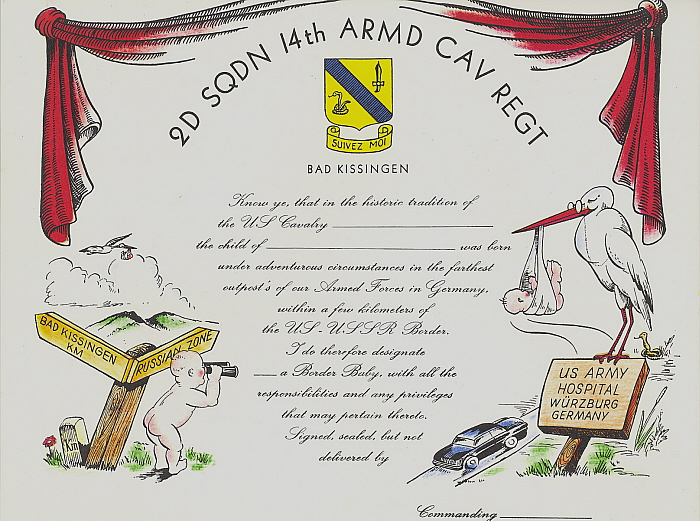 2D SQDN 14th ARMD CAV REGT
SUIVEZ MOI
BAD KISSINGEN
Know ye, that in the historic tradition of
the US Cavalry
the child of was born
under adventurous circumstances in the farthest
outpost's of our Armed Forces in Germany,
within a few kilometers of
the US. USSR Border.
I do therefore designate
a Border Baby, with all the
responsibilities and any privileges
that may pertain thereto.
Signed, sealed, but not
delivered by
Commanding
BAD KISSINGEN
KM
RUSSIAN ZONE
KM
US ARMY
HOSPITAL
WÜRZBURG
GERMANY